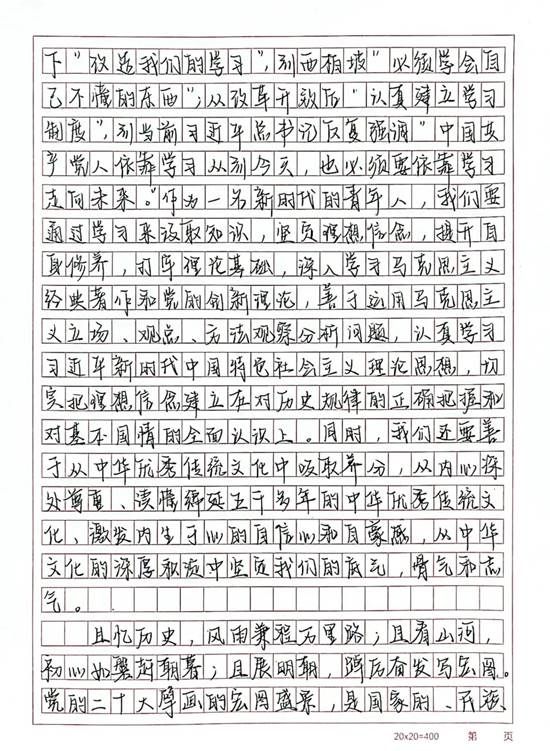 下“改造我们的学习”,到西柏坡“必须学会自
己不懂的东西”;从改革开放后“认真建立学习
制度”,到当前习近平总书记反复强调“中国共
产党人依靠学习从到今天,也必须要依靠学习
走向未来。”作为一名新时代的青年人,我们要
通过学习来汲取知识,坚定理想信念,提升自
身修养,打牢理论基础,深入学习马克思主义
经典著作和党的创新理论,善于运用马克思主
义立场、观点、方法观察分析问题,认真学习
习近平新时代中国特色社会主义理论思想,切
实把理想信念建立在对历史规律的正确把握和
对基本国情的全面认识上。同时,我们还要善
于从中华优秀传统文化中吸取养分,从内心深
处尊重、读懂绵延五千多年的中华优秀传统文
化、激发内生于心的自信心和自豪感,从中华
文化的深厚积淀中坚定我们的底气,骨气和志
气。
且忆历史,风雨兼程万里路;且看山河,
初心如磐赶朝暮;且展明朝,踔厉奋发写宏图。
党的二十大擘画的宏图盛景,是国家的、民族
20×20=400 第 页